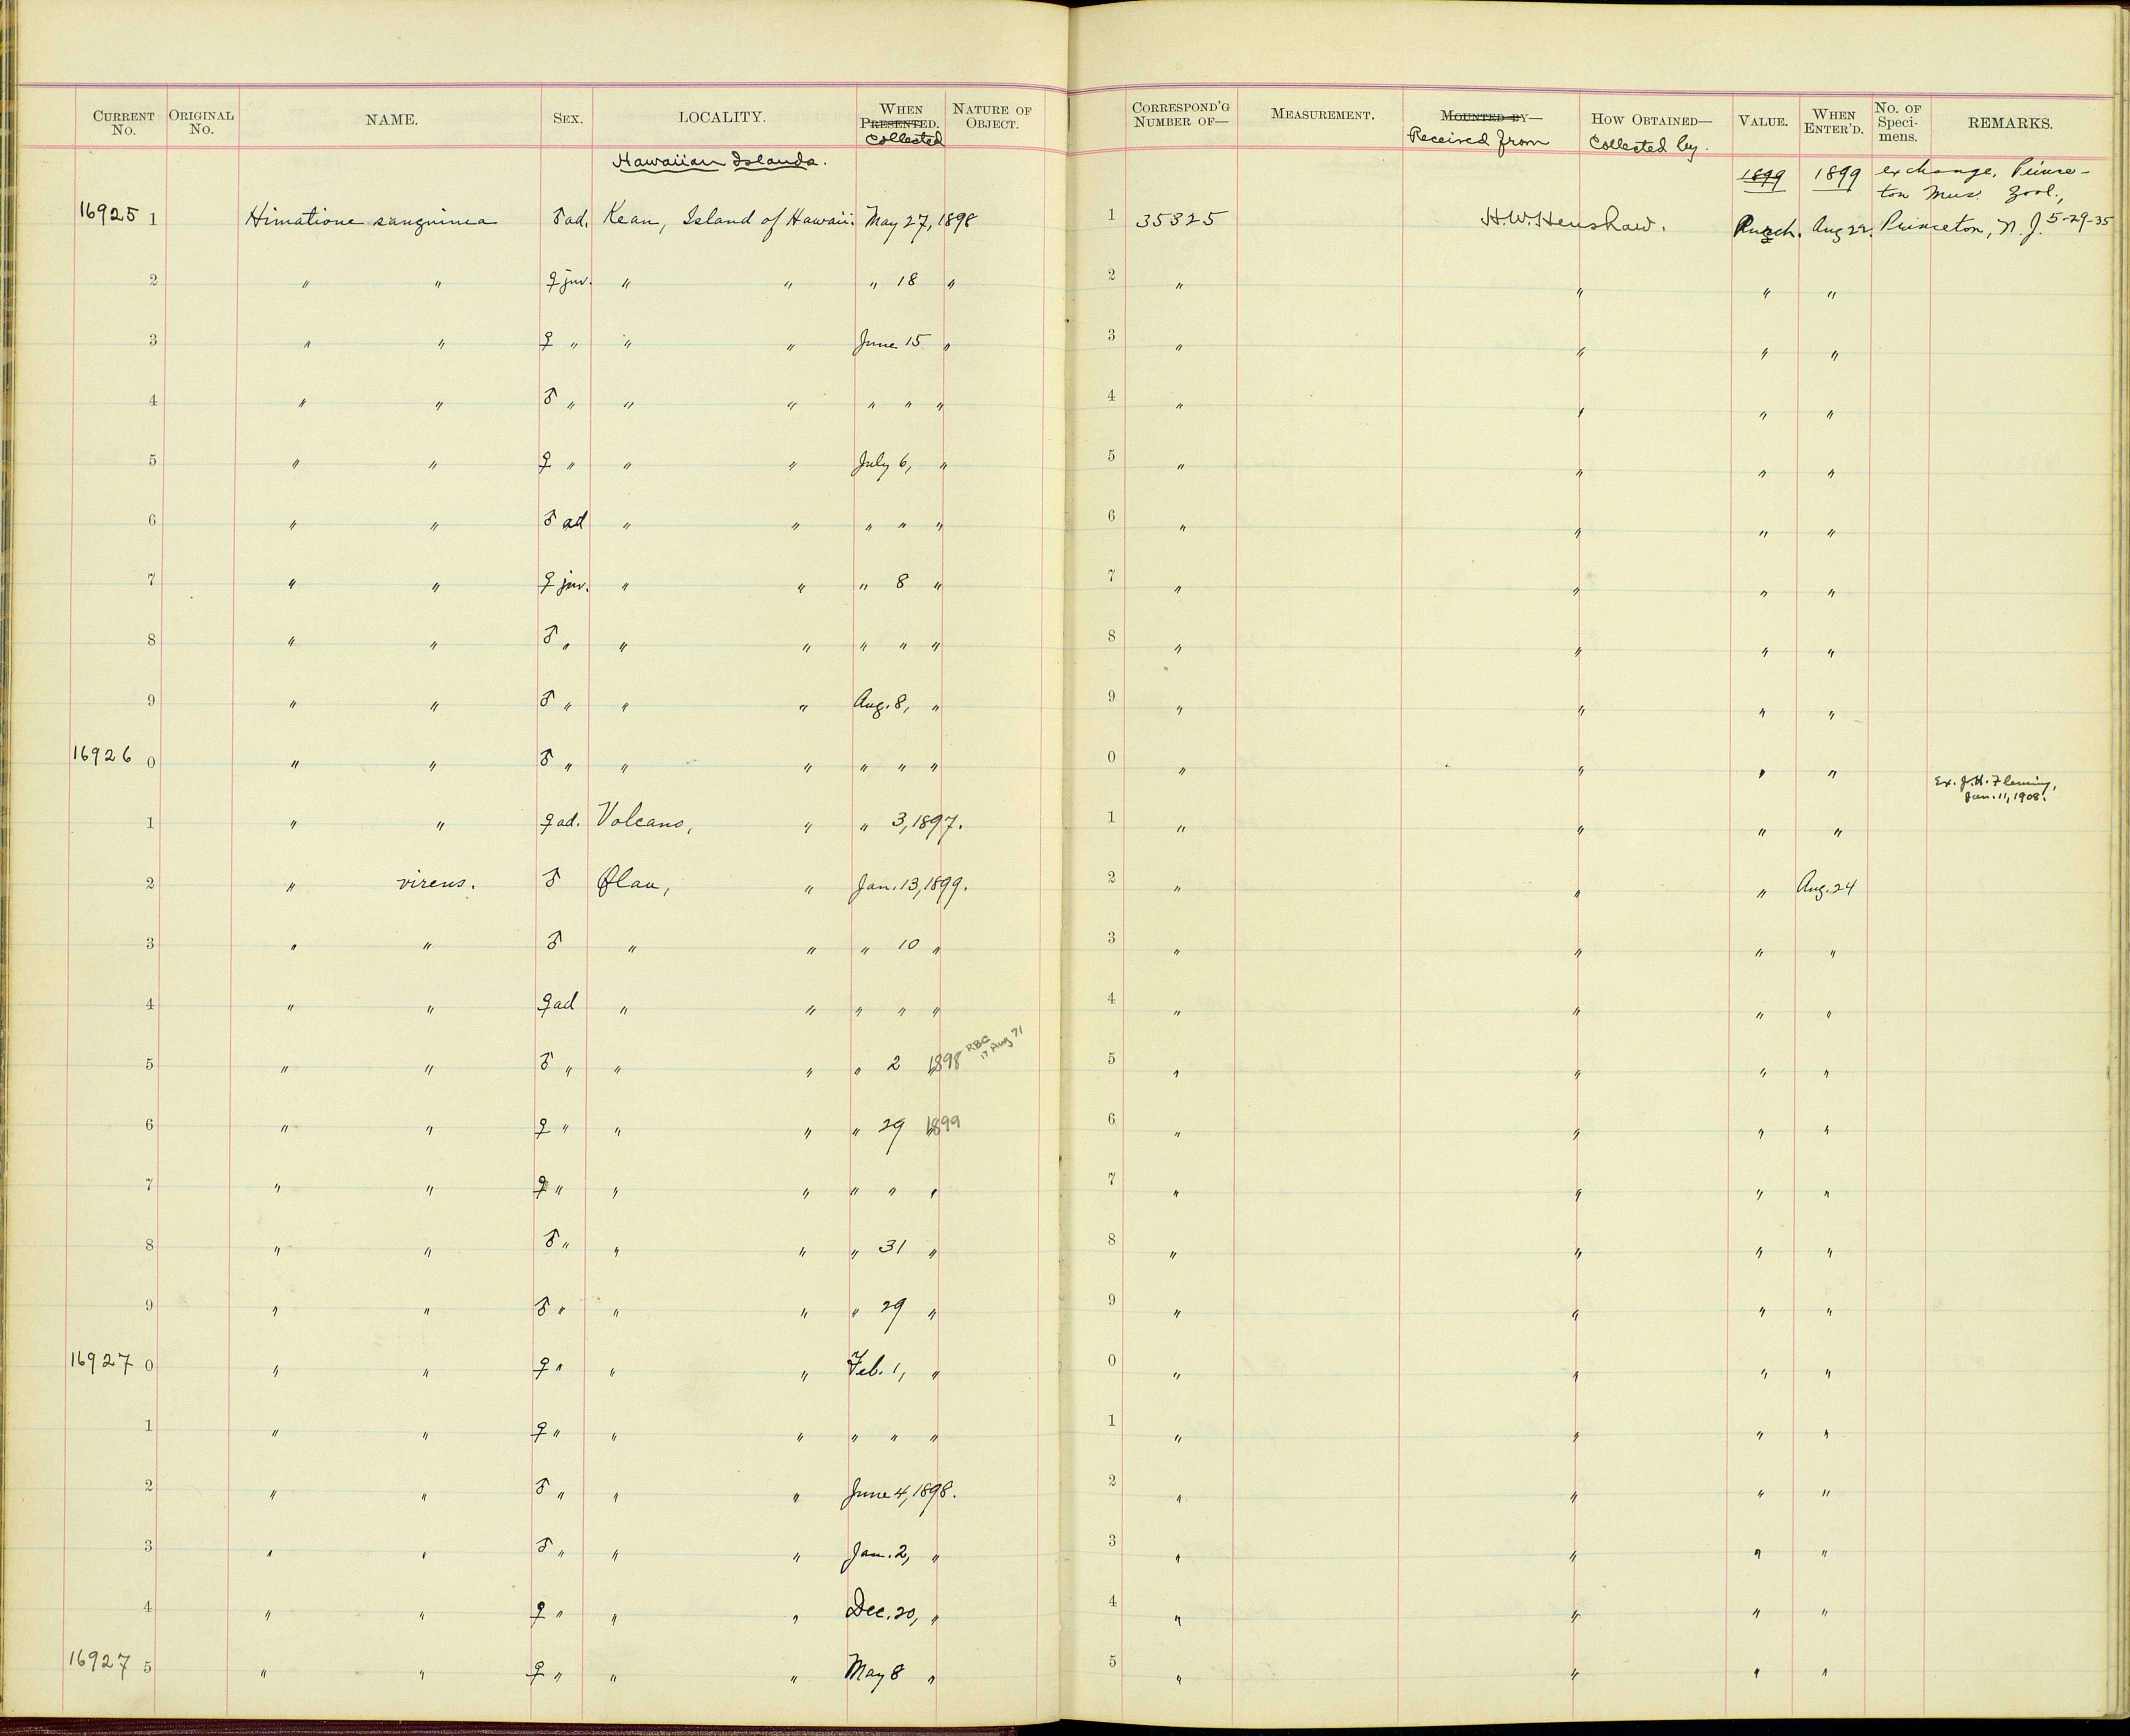 CURRENT No. ORIGINAL No. NAME. SEX. LOCALITY. WHEN PRESENTED. Collected NATURE OF OBJECT. CORRESPOND'G NUMBER OF— MEASUREMENT. MOUNTED BY— Received from HOW OBTAINED— Collected by. VALUE. WHEN ENTER'D. No. of Speci-mens. REMARKS.
Hawaiian Islands. 1899 1899 exchange, Prince-
ton Mus. Zool.,
16925 1 Himatione sanguinea ♂ ad. Kean, Island of Hawaii. May 27, 1898 1 35325 H.W. Henshaw. Purch. Aug 22. Princeton, N.J. 5-29-35
2 " " ♀ juv. " " " 18 " 2 " " " "
3 " " ♀ " " " June 15 " 3 " " " "
4 " " ♂ " " " " " " 4 " " " "
5 " " ♀ " " " July 6, " 5 " " " "
6 " " ♂ ad " " " " " 6 " " " "
7 " " ♀ juv. " " " 8 " 7 " " " "
8 " " ♂ " " " " " " 8 " " " "
9 " " ♂ " " " Aug. 8, " 9 " " " "
16926 0 " " ♂ " " " " " " 0 " " " "
Ex. J.H. Fleming,
Jan. 11, 1908.
1 " " ♀ ad. Volcano, " " 3, 1897. 1 " " " "
2 " virens. ♂ Olaa, " Jan. 13, 1899. 2 " " " Aug. 24
3 " " ♂ " " " 10 " 3 " " " "
4 " " ♀ ad " " " " " 4 " " " "
RBC
17 Aug 71
5 " " ♂ " " " " 2 1898 5 " " " "
6 " " ♀ " " " " 29 1899 6 " " " "
7 " " ♀ " " " " " " 7 " " " "
8 " " ♂ " " " " 31 " 8 " " " "
9 " " ♂ " " " " 29 " 9 " " " "
16927 0 " " ♀ " " " Feb. 1, " 0 " " " "
1 " " ♀ " " " " " " 1 " " " "
2 " " ♂ " " " June 4, 1898. 2 " " " "
3 " " ♂ " " " Jan. 2, " 3 " " " "
4 " " ♀ " " " Dec. 20, " 4 " " " "
16927 5 " " ♀ " " " May 8 " 5 " " " "